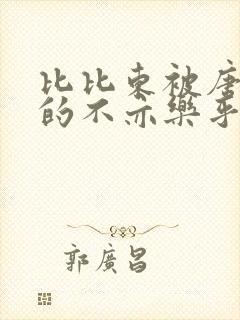 比比东被唐
的不亦樂乎
郭廣昌